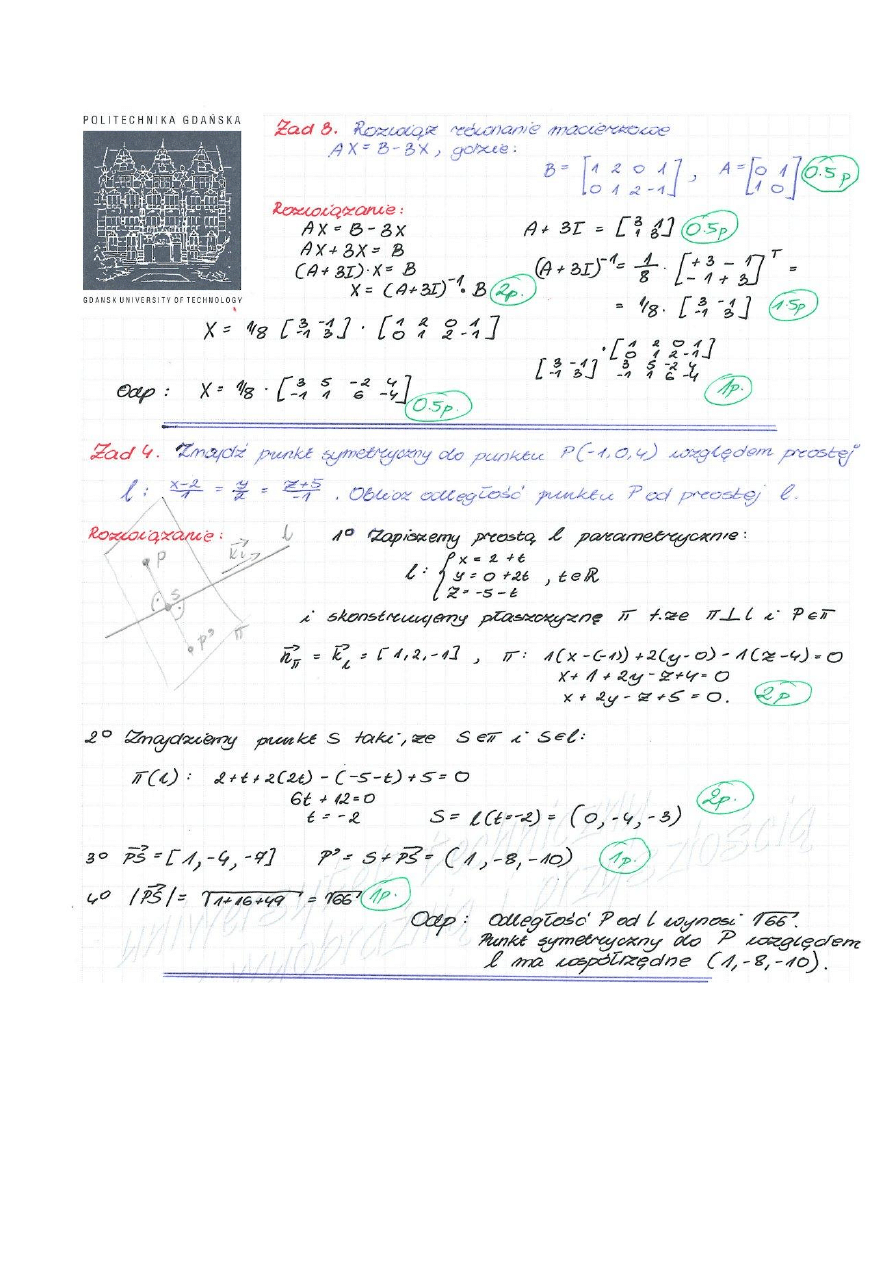 POLITECHNIKA GDAŃSKA
GDAŃSK UNIVERSITY OF TECHNOLOGY
Zad 3. Rozwiąż równanie macierzowe
AX = B - 3X, gdzie:
B = [1 2 0 1; 0 1 2 -1], A = [0 1; 1 0] 0.5p
Rozwiązanie:
AX = B - 3X
AX + 3X = B
(A + 3I)·X = B
X = (A + 3I)⁻¹·B 2p.
A + 3I = [3 1; 1 3] 0.5p
(A + 3I)⁻¹ = 1/8 · [+3 -1; -1 +3]ᵀ =
= 1/8 · [3 -1; -1 3] 1.5p
X = 1/8 [3 -1; -1 3] · [1 2 0 1; 0 1 2 -1]
· [1 2 0 1; 0 1 2 -1]
[3 -1; -1 3] 3 5 -2 4; -1 1 6 -4
1p.
Odp: X = 1/8 · [3 5 -2 4; -1 1 6 -4] 0.5p.
Zad 4. Znajdź punkt symetryczny do punktu P(-1,0,4) względem prostej
l: (x-2)/1 = y/2 = (z+5)/-1 . Oblicz odległość punktu P od prostej l.
Rozwiązanie:
P
S
P'
π
l
1° Zapiszemy prostą l parametrycznie:
l: { x = 2 + t
y = 0 + 2t , t∈ℝ
z = -5 - t
i skonstruujemy płaszczyznę π t.że π⊥l i P∈π
n⃗π = k⃗l = [1,2,-1] , π: 1(x-(-1))+2(y-0)-1(z-4)=0
x + 1 + 2y - z + 4 = 0
x + 2y - z + 5 = 0. 2p
2° Znajdziemy punkt S taki, że S∈π i S∈l:
π(l): 2+t+2(2t) - (-5-t)+5=0
6t + 12 = 0
t = -2 S = l(t=-2) = (0,-4,-3) 2p.
3° P⃗S = [1,-4,-7] P' = S + P⃗S = (1,-8,-10) 1p.
4° |P⃗S| = √1+16+49 = √66 1p.
Odp: Odległość P od l wynosi √66.
Punkt symetryczny do P względem
l ma współrzędne (1,-8,-10).